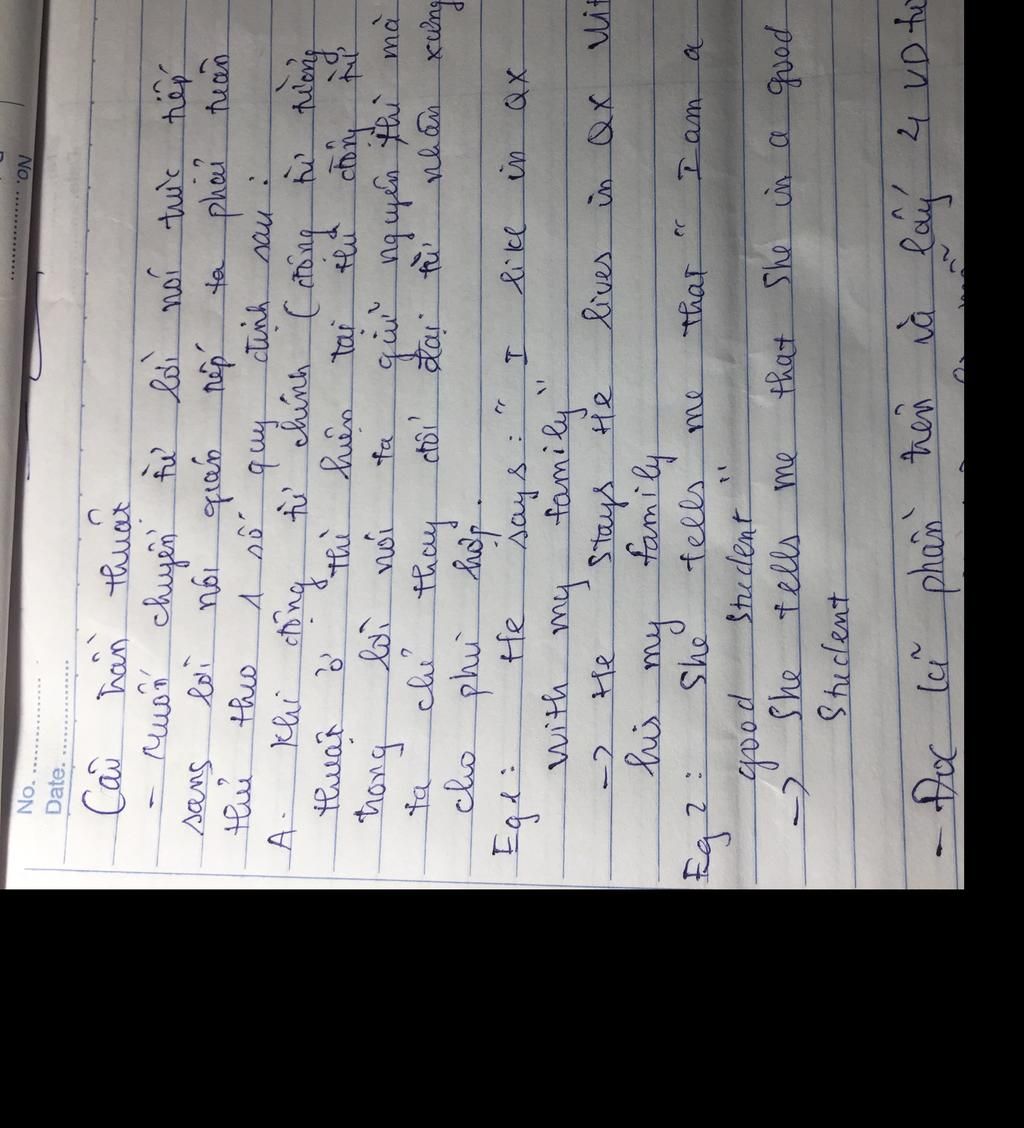 No. ................
Date. ................
Câu trần thuật
- Muốn chuyển từ lời nói trực tiếp
sang lời nói gián tiếp ta phải tuân
thủ theo 1 số quy định sau:
A. Khi động từ chính (động từ tường
thuật ở thì hiện tại thì động từ
trong lời nói ta giữ nguyên thì mà
ta chỉ thay đổi đại từ nhân xưng
cho phù hợp.
Eg1: He says: " I like in QX
with my family"
-> He Stays He lives in QX Wit
his my family
Eg 2: She tells me that " I am a
good Student"
-> She tells me that She in a good
Student
- Đọc kĩ phần trên và lấy 4 VD
No. ................